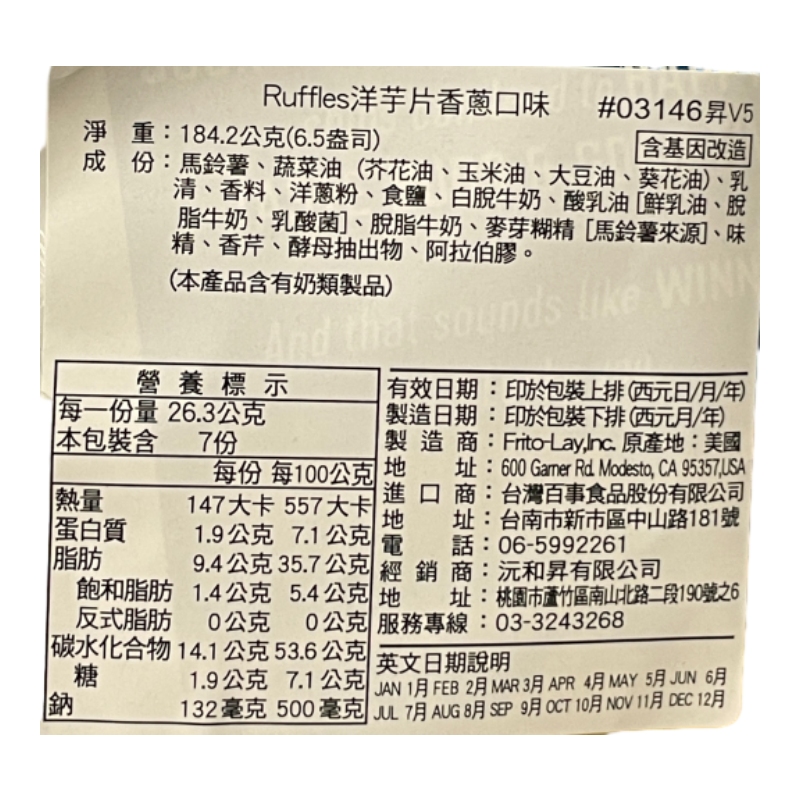 Ruffles洋芋片香蔥口味 #03146昇V5
淨 重：184.2公克(6.5盎司)
含基因改造
成 份：馬鈴薯、蔬菜油（芥花油、玉米油、大豆油、葵花油）、乳
清、香料、洋蔥粉、食鹽、白脫牛奶、酸乳油［鮮乳油、脫
脂牛奶、乳酸菌］、脫脂牛奶、麥芽糊精［馬鈴薯來源］、味
精、香芹、酵母抽出物、阿拉伯膠。
（本產品含有奶類製品）
And that sounds like WINN
營養標示
每一份量 26.3公克
本包裝含 7份
每份 每100公克
熱量 147大卡 557大卡
蛋白質 1.9公克 7.1公克
脂肪 9.4公克 35.7公克
飽和脂肪 1.4公克 5.4公克
反式脂肪 0公克 0公克
碳水化合物 14.1公克 53.6公克
糖 1.9公克 7.1公克
鈉 132毫克 500毫克
有效日期：印於包裝上排(西元日/月/年)
製造日期：印於包裝下排(西元月/年)
製造商：Frito-Lay,Inc. 原產地：美國
地 址：600 Garner Rd. Modesto, CA 95357,USA
進口商：台灣百事食品股份有限公司
地 址：台南市新市區中山路181號
電 話：06-5992261
經銷商：沅和昇有限公司
地 址：桃園市蘆竹區南山北路二段190號之6
服務專線：03-3243268
英文日期說明
JAN 1月 FEB 2月 MAR 3月 APR 4月 MAY 5月 JUN 6月
JUL 7月 AUG 8月 SEP 9月 OCT 10月 NOV 11月 DEC 12月